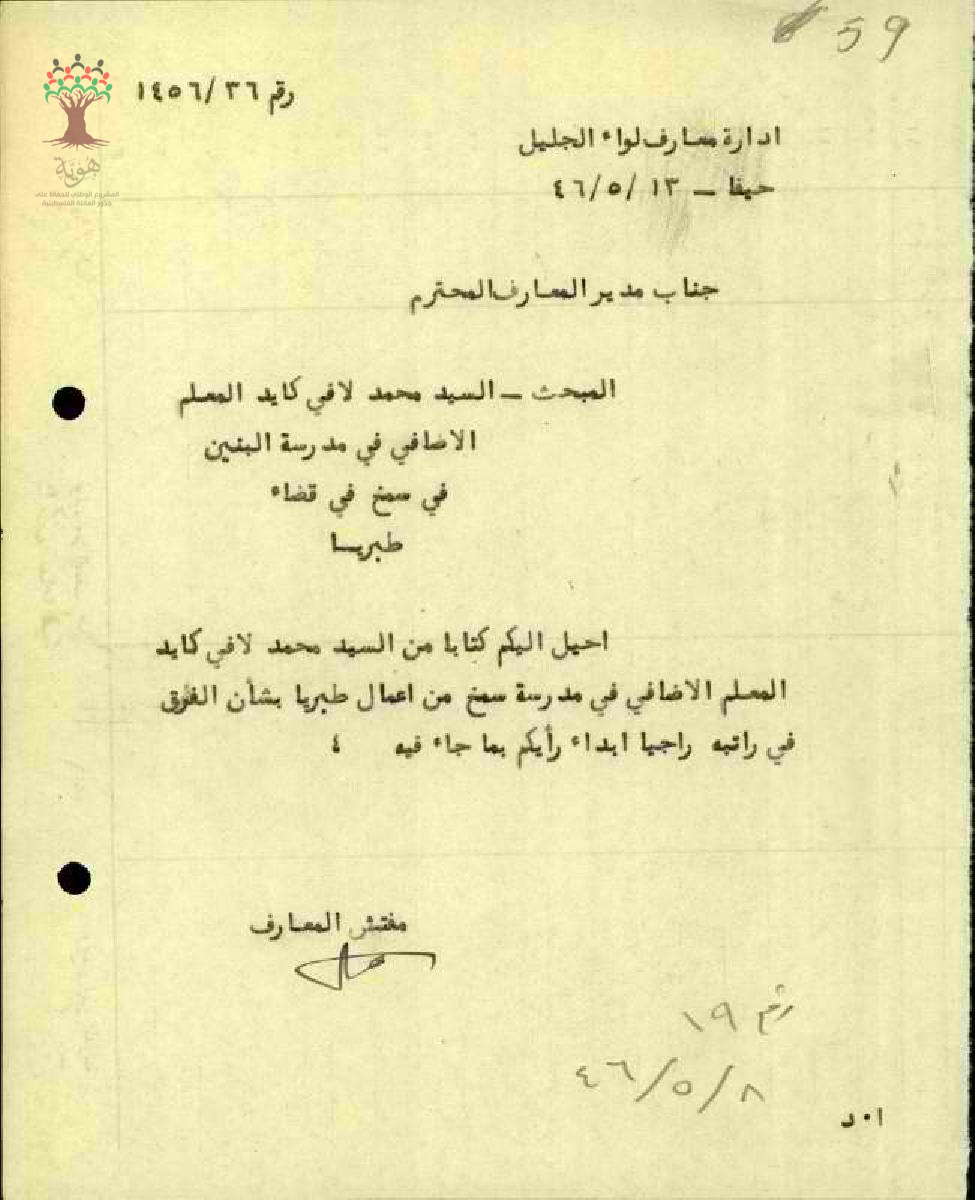 59
هوية
المشروع الوطني للحفاظ على
جذور العائلة الفلسطينية
رقم ١٤٥٦/٣٦
ادارة معارف لواء الجليل
حيفا – ١٣ /٤٦/٥
جناب مدير المعارف المحترم
المبحث – السيد محمد لافي كايد المعلم
الاضافي في مدرسة البنين
في سمخ في قضاء
طبريا
احيل اليكم كتابا من السيد محمد لافي كايد
المعلم الاضافي في مدرسة سمخ من اعمال طبريا بشأن الفرق
في راتبه راجيا ابداء رأيكم بما جاء فيه ٤
مفتش المعارف
رقم ١٩
٤٦/٥/٨
ا٠د